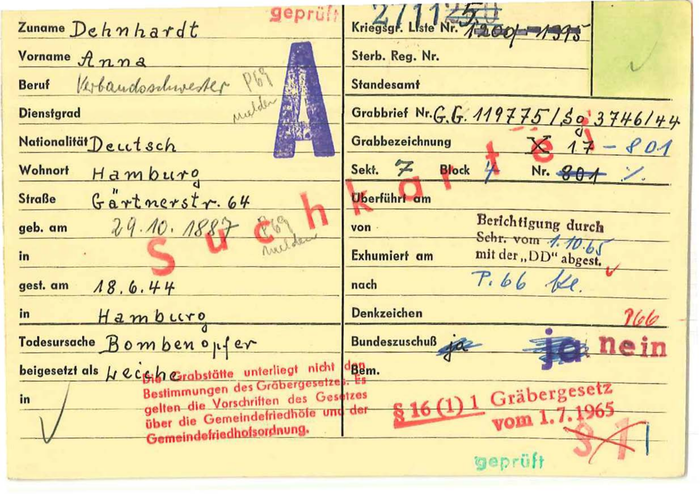 geprüft
Zuname Dehnhardt
Vorname Anna
Beruf Verbandsschwester P69 melden
Dienstgrad
Nationalität Deutsch
Wohnort Hamburg
Straße Gärtnerstr. 64
geb. am 29.10.1887 P69 melden
in
gest. am 18.6.44
in Hamburg
Todesursache Bombenopfer
beigesetzt als Leiche
in
A
Suchkartei
Die Grabstätte unterliegt nicht den
Bestimmungen des Gräbergesetzes. Es
gelten die Vorschriften des Gesetzes
über die Gemeindefriedhöfe und der
Gemeindefriedhofsordnung.
Kriegsgr. Liste Nr. 1200/-1395
Sterb. Reg. Nr.
Standesamt
Grabbrief Nr. G.G. 119775/Sg 3746/44
Grabbezeichnung X 17 - 801
Sekt. 7 Block 4 Nr. 801 %.
Überführt am
von
Berichtigung durch
Schr. vom 1.10.65
mit der „DD" abgest.
Exhumiert am
nach P.66
Denkzeichen P66
Bundeszuschuß ja ja nein
Bem.
§ 16 (1) 1 Gräbergesetz
vom 1.7.1965
§ 1
geprüft